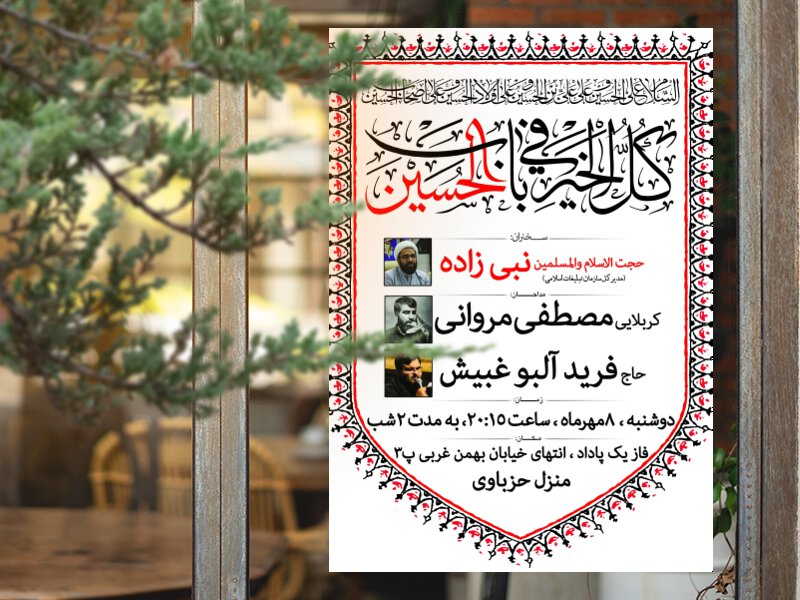 السلام علی الحسین و علی علی بن الحسین و علی اولاد الحسین و علی اصحاب الحسین
کل الخیر فی باب الحسین
سخنران:
حجت الاسلام والمسلمین نبی زاده
(مدیر کل سازمان تبلیغات اسلامی)
مداحان:
کربلایی مصطفی مروانی
حاج فرید آلبو غبیش
زمان:
دوشنبه ، ۸ مهرماه ، ساعت ۲۰:۱۵، به مدت ۲ شب
مکان:
فاز یک پاداد ، انتهای خیابان بهمن غربی پ۳
منزل حزباوی